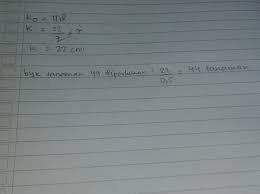 K₀ = πd
K = 22/7 . 7
K = 22 cm
byk tanaman yg diperlukan : 22/0,5 = 44 tanaman